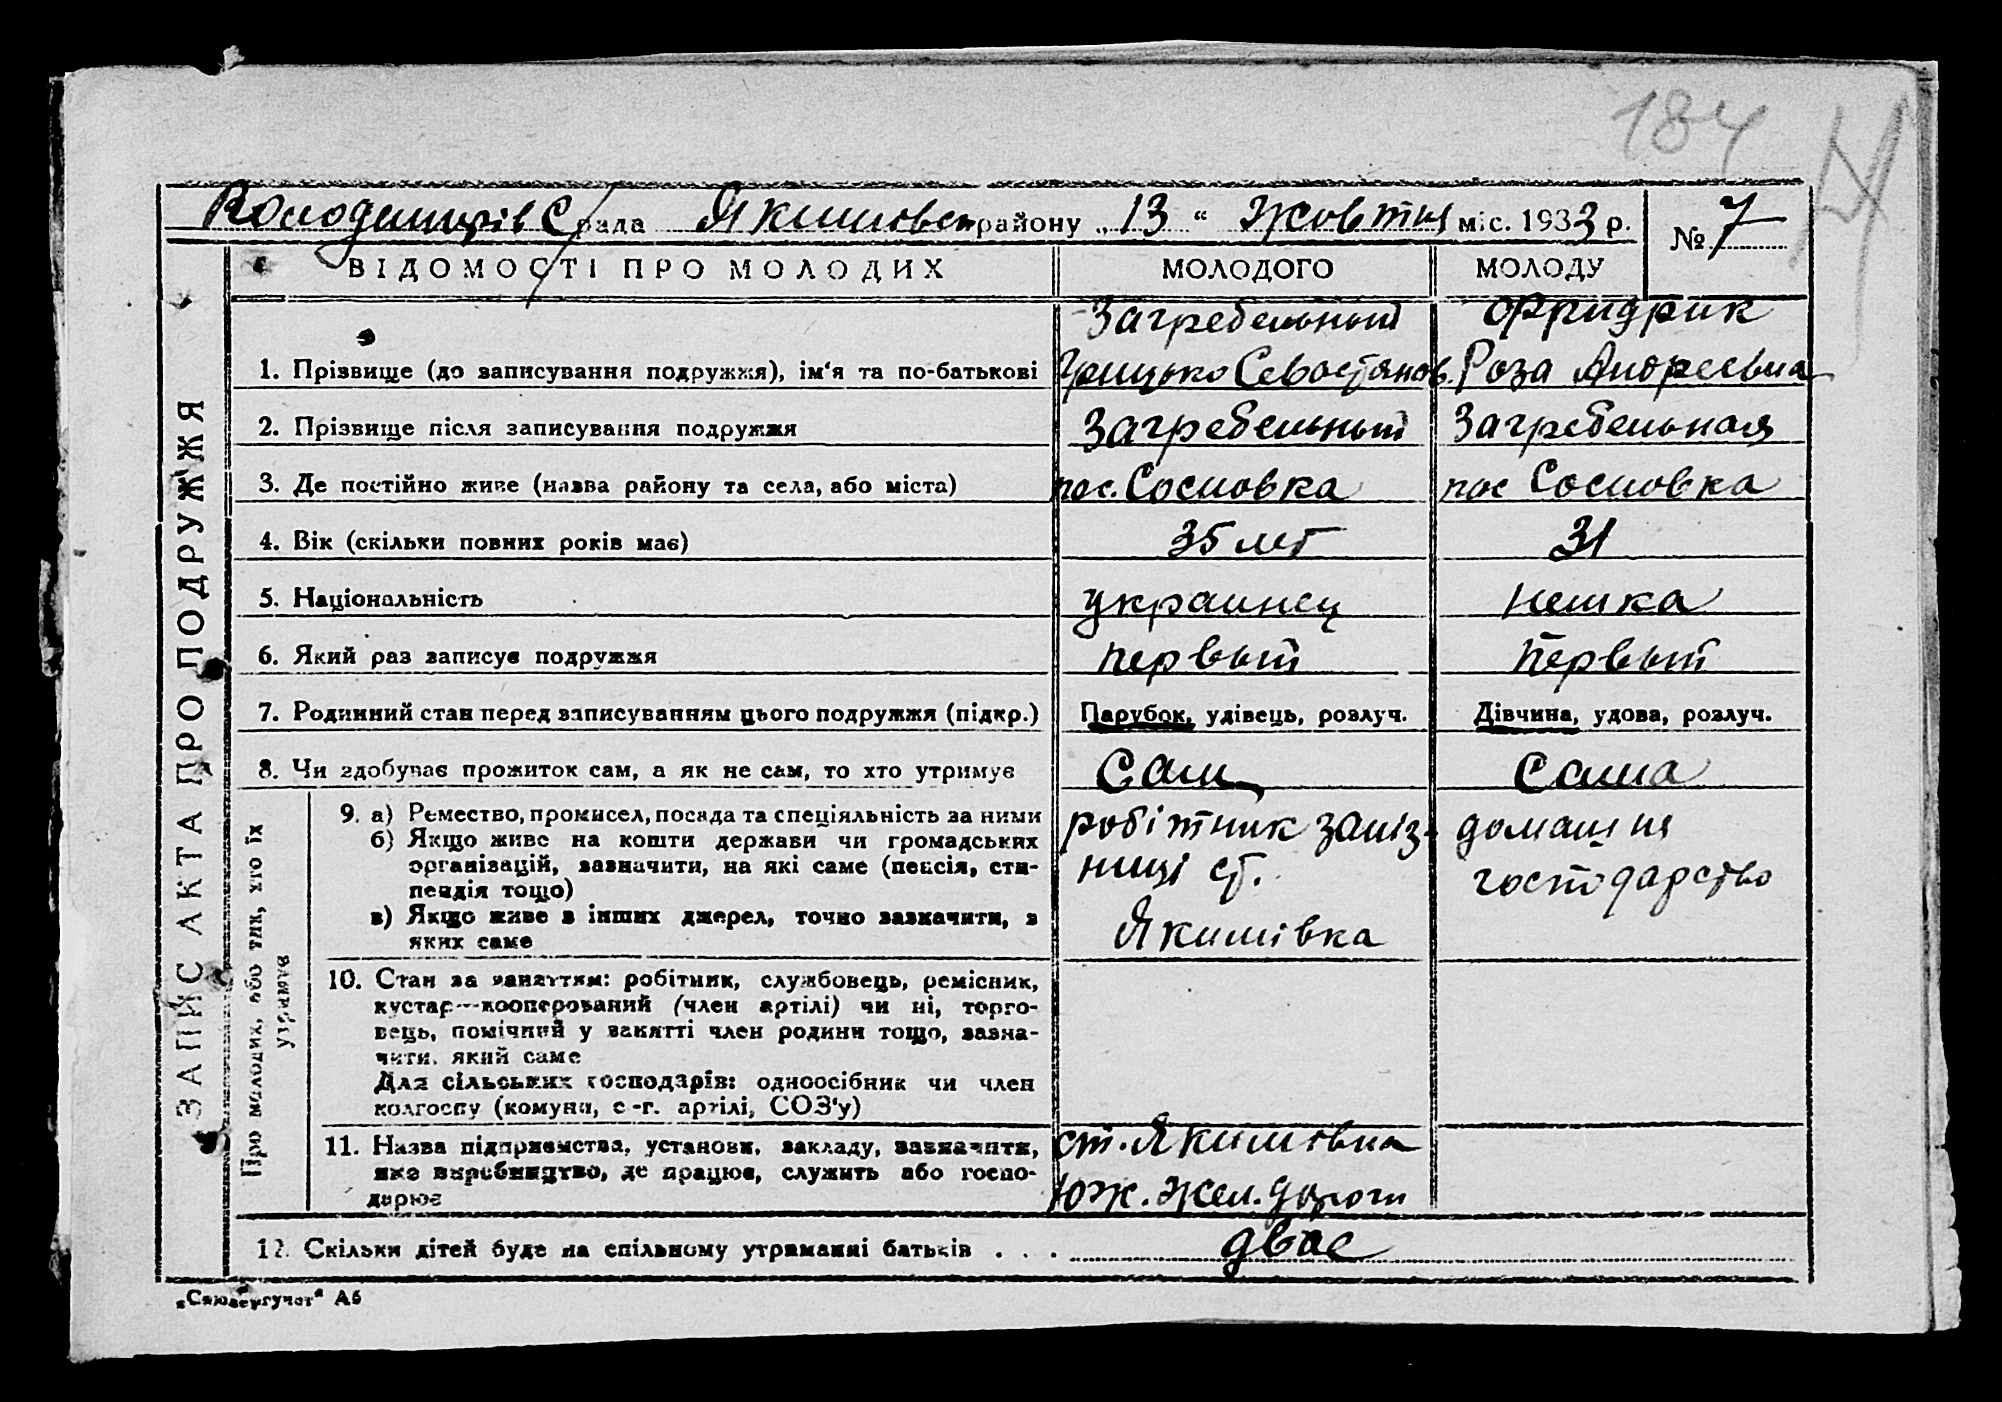 184
Колодищрів С/рада Якимовск району „13“ Жовтня міс. 1933 р. № 7
ЗАПИС АКТА ПРО ПОДРУЖЖЯ
ВІДОМОСТІ ПРО МОЛОДИХ МОЛОДОГО МОЛОДУ
Загребельный Фридрик
1. Прізвище (до записування подружжя), ім'я та по-батькові Грицько Севастянов. Роза Андреевна
2. Прізвище після записування подружжя Загребельный Загребельная
3. Де постійно живе (назва району та села, або міста) пос. Сосновка пос Сосновка
4. Вік (скільки повних років має) 35 лет 31
5. Національність украинец немка
6. Який раз записує подружжя первый первый
7. Родинний стан перед записуванням цього подружжя (підкр.) Парубок, удівець, розлуч. Дівчина, удова, розлуч.
8. Чи здобуває прожиток сам, а як не сам, то хто утримує Сам Сама
Про молодих, або тих, хто їх утримує
9. а) Ремество, промисел, посада та спеціяльність за ними робітник заліз- домашня
б) Якщо живе на кошти держави чи громадських ниці ст. господарство
організацій, зазначити, на які саме (пенсія, сти-
пендія тощо)
в) Якщо живе з інших джерел, точно зазначити, з Якимівка
яких саме
10. Стан за заняттям: робітник, службовець, ремісник,
кустар—кооперований (член артілі) чи ні, торго-
вець, помічний у занятті член родини тощо, зазна-
чити, який саме
Для сільських господарів: одноосібник чи член
колгоспу (комуни, с.-г. артілі, СОЗ'у)
11. Назва підприємства, установи, закладу, зазначити, ст. Якимовка
яке виробництво, де працює, служить або госпо- Юж. жел. дороги
дарює
12. Скільки дітей буде на спільному утриманні батьків . . . двое
„Союзоргучет“ А5